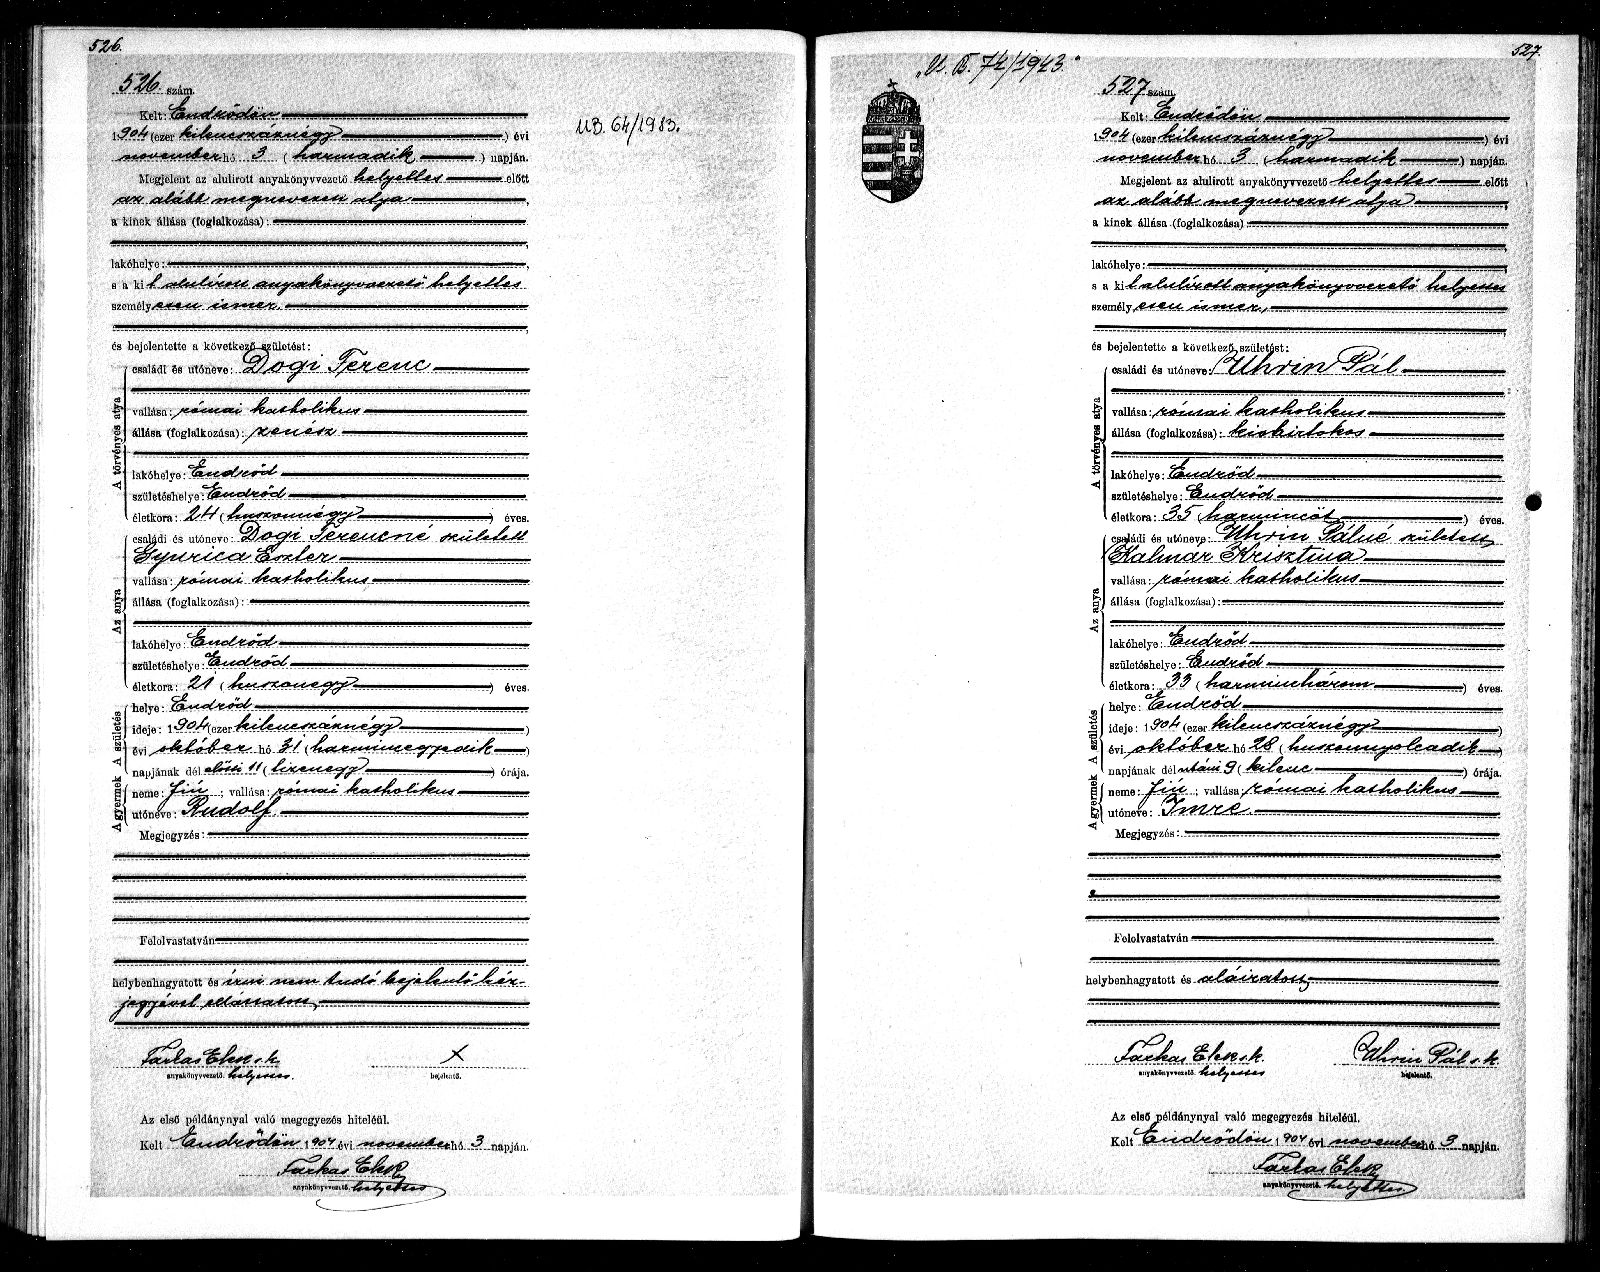 526.
526. szám.
Kelt: Endrődön
1904 (ezer kilencszáznégy) évi
november hó 3 (harmadik) napján.
Megjelent az alulirott anyakönyvvezető helyettes előtt
az alább megnevezett atya,
a kinek állása (foglalkozása):
lakóhelye:
s a kit alulírott anyakönyvvezető helyettes
személyesen ismer
és bejelentette a következő születést:
A törvényes atya
családi és utóneve: Dogi Ferenc
vallása: római katholikus
állása (foglalkozása): zenész
lakóhelye: Endrőd
születéshelye: Endrőd
életkora: 24 (huszonnégy) éves.
Az anya
családi és utóneve: Dogi Ferencné született
Gyurica Eszter
vallása: római katholikus
állása (foglalkozása):
lakóhelye: Endrőd
születéshelye: Endrőd
életkora: 21 (huszonegy) éves.
A gyermek A születés
helye: Endrőd
ideje: 1904 (ezer kilencszáznégy)
évi október hó 31 (harmincegyedik)
napjának dél előtti 11 (tizenegy) órája.
neme: fiú; vallása: római katholikus
utóneve: Rudolf
Megjegyzés:
Felolvastatván
helybenhagyatott és írni nem tudó bejelentő kéz-
jegyével elláttatott,
Farkas Elek s.k.
anyakönyvvezető. helyettes.
x
bejelentő.
Az első példánynyal való megegyezés hiteléül.
Kelt Endrődön 1904 évi november hó 3 napján.
Farkas Elek
anyakönyvvezető. helyettes
UB. 64/1983.
„U. B. 74/1943."
527.
527 szám.
Kelt: Endrődön
1904 (ezer kilencszáznégy) évi
november hó 3 (harmadik) napján.
Megjelent az alulirott anyakönyvvezető helyettes előtt
az alább megnevezett atya,
a kinek állása (foglalkozása)
lakóhelye:
s a kit alulírott anyakönyvvezető helyettes
személyesen ismer,
és bejelentette a következő születést:
A törvényes atya
családi és utóneve: Uhrin Pál
vallása: római katholikus
állása (foglalkozása): kisbirtokos
lakóhelye: Endrőd
születéshelye: Endrőd
életkora: 35 (harmincöt) éves.
Az anya
családi és utóneve: Uhrin Pálné született
Kalmár Krisztina
vallása: római katholikus
állása (foglalkozása):
lakóhelye: Endrőd
születéshelye: Endrőd
életkora: 33 (harminchárom) éves.
A gyermek A születés
helye: Endrőd
ideje: 1904 (ezer kilencszáznégy)
évi október hó 28 (huszonnyolcadik)
napjának dél utáni 9 (kilenc) órája.
neme: fiú; vallása: római katholikus
utóneve: Imre
Megjegyzés:
Felolvastatván
helybenhagyatott és aláiratott,
Farkas Elek s.k.
anyakönyvvezető. helyettes
Uhrin Pál s.k.
bejelentő.
Az első példánynyal való megegyezés hiteléül.
Kelt Endrődön 1904 évi november hó 3 napján.
Farkas Elek
anyakönyvvezető. helyettes.